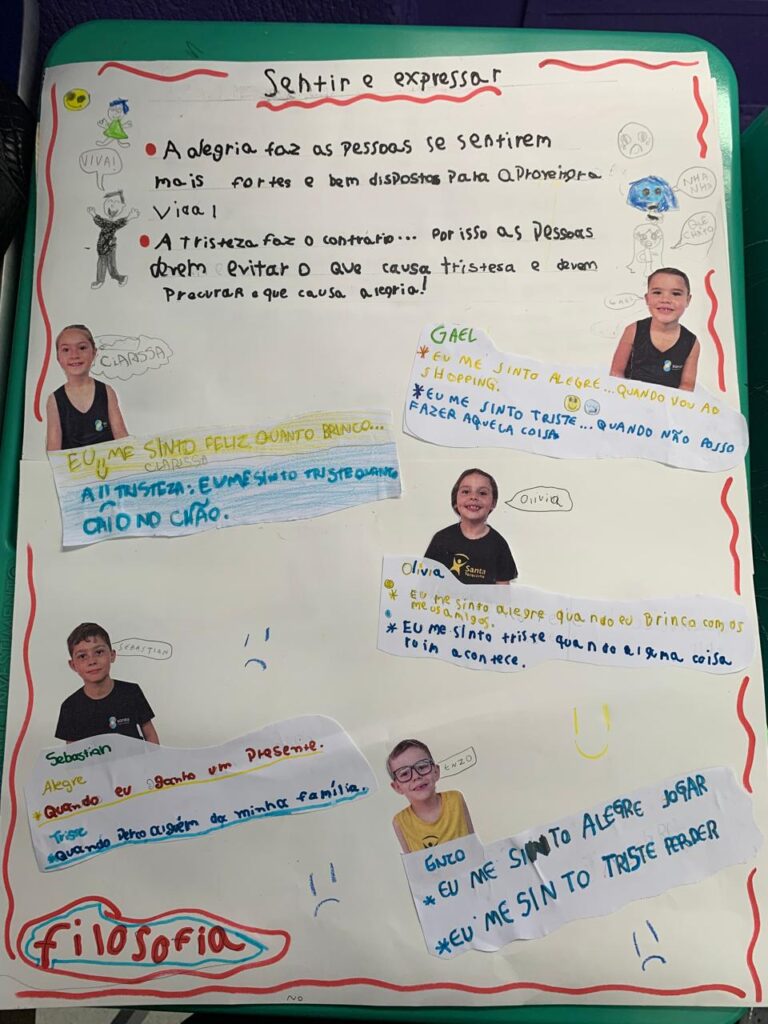 Sentir e expressar
• A alegria faz as pessoas se sentirem
mais fortes e bem dispostos para aproveitara
vida!
VIVA!
NHA
NHA
QUE
CHATO
• A tristeza faz o contrário... por isso as pessoas
devem evitar o que causa tristesa e devem
procurar o que causa alegria!
CLARISSA
EU ME SINTO FELIZ QUANTO BRINCO...
CLARISSA
A TRISTEZA: EU ME SINTO TRISTE QUANO
CAIO NO CHÃO.
GAEL
GAEL
* EU ME SINTO ALEGRE... QUANDO VOU AO
SHOPPING.
* EU ME SINTO TRISTE... QUANDO NÃO POSSO
FAZER AQUELA COISA
Olivia
Santa
Olivia
* EU me sinto alegre quando eu Brinco com os
meus amigos.
* EU ME sinto triste quando alguma coisa
ruim acontece.
SEBASTIAN
Sebastian
Alegre
* Quando eu ganho um presente.
Triste
* Quando perco alguém da minha família.
ENZO
ENZO
* EU ME SINTO ALEGRE JOGAR
* EU ME SINTO TRISTE PERDER
filosofia
NO